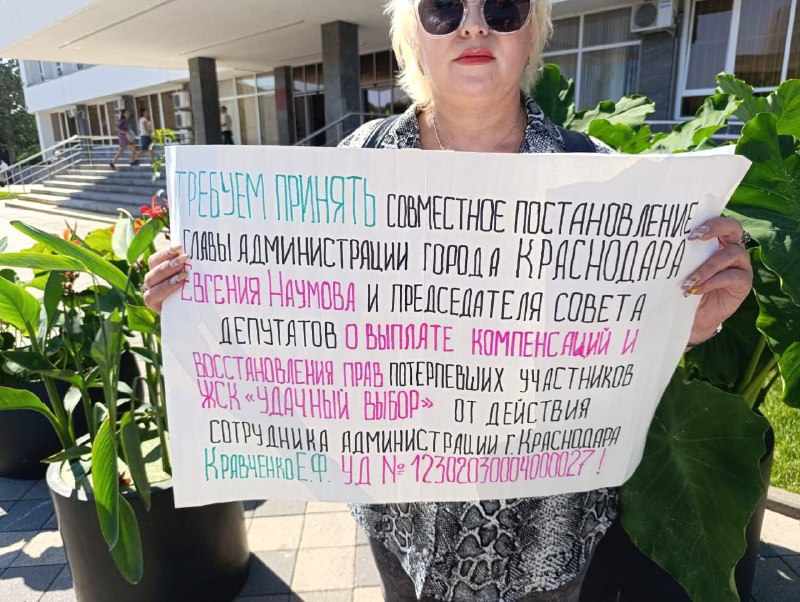 ТРЕБУЕМ ПРИНЯТЬ СОВМЕСТНОЕ ПОСТАНОВЛЕНИЕ
ГЛАВЫ АДМИНИСТРАЦИИ ГОРОДА КРАСНОДАРА
ЕВГЕНИЯ НАУМОВА И ПРЕДСЕДАТЕЛЯ СОВЕТА
ДЕПУТАТОВ О ВЫПЛАТЕ КОМПЕНСАЦИЙ И
ВОССТАНОВЛЕНИЯ ПРАВ ПОТЕРПЕВШИХ УЧАСТНИКОВ
ЖСК «УДАЧНЫЙ ВЫБОР» ОТ ДЕЙСТВИЯ
СОТРУДНИКА АДМИНИСТРАЦИИ Г. КРАСНОДАРА
КРАВЧЕНКО Е.Ф. УД № 12302030004000027!